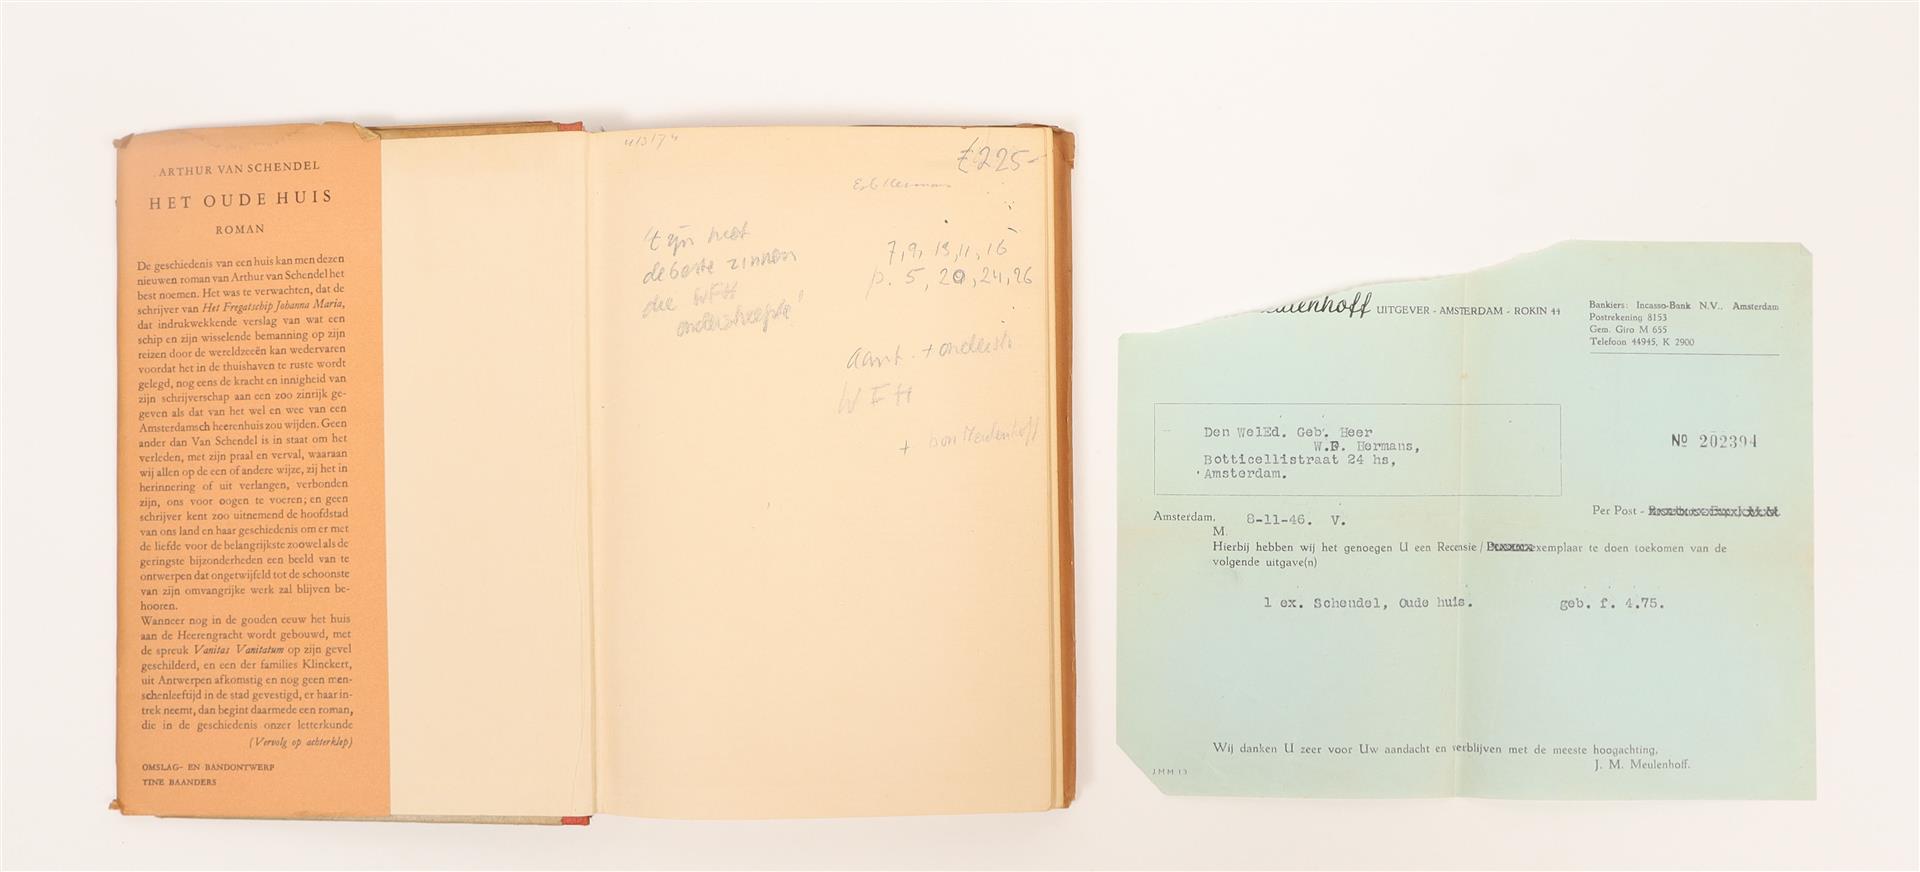 ARTHUR VAN SCHENDEL
HET OUDE HUIS
ROMAN
De geschiedenis van een huis kan men dezen
nieuwen roman van Arthur van Schendel het
best noemen. Het was te verwachten, dat de
schrijver van Het Fregatschip Johanna Maria,
dat indrukwekkende verslag van wat een
schip en zijn wisselende bemanning op zijn
reizen door de wereldzeeën kan wedervaren
voordat het in de thuishaven te ruste wordt
gelegd, nog eens de kracht en innigheid van
zijn schrijverschap aan een zoo zinrijk ge-
geven als dat van het wel en wee van een
Amsterdamsch heerenhuis zou wijden. Geen
ander dan Van Schendel is in staat om het
verleden, met zijn praal en verval, waaraan
wij allen op de een of andere wijze, zij het in
herinnering of uit verlangen, verbonden
zijn, ons voor oogen te voeren; en geen
schrijver kent zoo uitnemend de hoofdstad
van ons land en haar geschiedenis om er met
de liefde voor de belangrijkste zoowel als de
geringste bijzonderheden een beeld van te
ontwerpen dat ongetwijfeld tot de schoonste
van zijn omvangrijke werk zal blijven be-
hooren.
Wanneer nog in de gouden eeuw het huis
aan de Heerengracht wordt gebouwd, met
de spreuk Vanitas Vanitatum op zijn gevel
geschilderd, en een der families Klinckert,
uit Antwerpen afkomstig en nog geen men-
schenleeftijd in de stad gevestigd, er haar in-
trek neemt, dan begint daarmede een roman,
die in de geschiedenis onzer letterkunde
(Vervolg op achterklep)
OMSLAG- EN BANDONTWERP
TINE BAANDERS
225-
't zijn niet
de beste zinnen
die WFH
onderstreepte!
7, 9, 13, 11, 16
p. 5, 20, 24, 26
aant. + onderstr.
WFH
+ bon Meulenhoff
Meulenhoff UITGEVER - AMSTERDAM - ROKIN 44
Bankiers: Incasso-Bank N.V., Amsterdam
Postrekening 8153
Gem. Giro M 655
Telefoon 44945, K 2900
Den WelEd. Geb. Heer
W.F. Hermans,
Botticellistraat 24 hs,
Amsterdam.
No 202394
Per Post -
Amsterdam, 8-11-46. V.
M.
Hierbij hebben wij het genoegen U een Recensie / exemplaar te doen toekomen van de
volgende uitgave(n)
1 ex. Schendel, Oude huis. geb. f. 4.75.
Wij danken U zeer voor Uw aandacht en verblijven met de meeste hoogachting,
J. M. Meulenhoff.
JMM 13